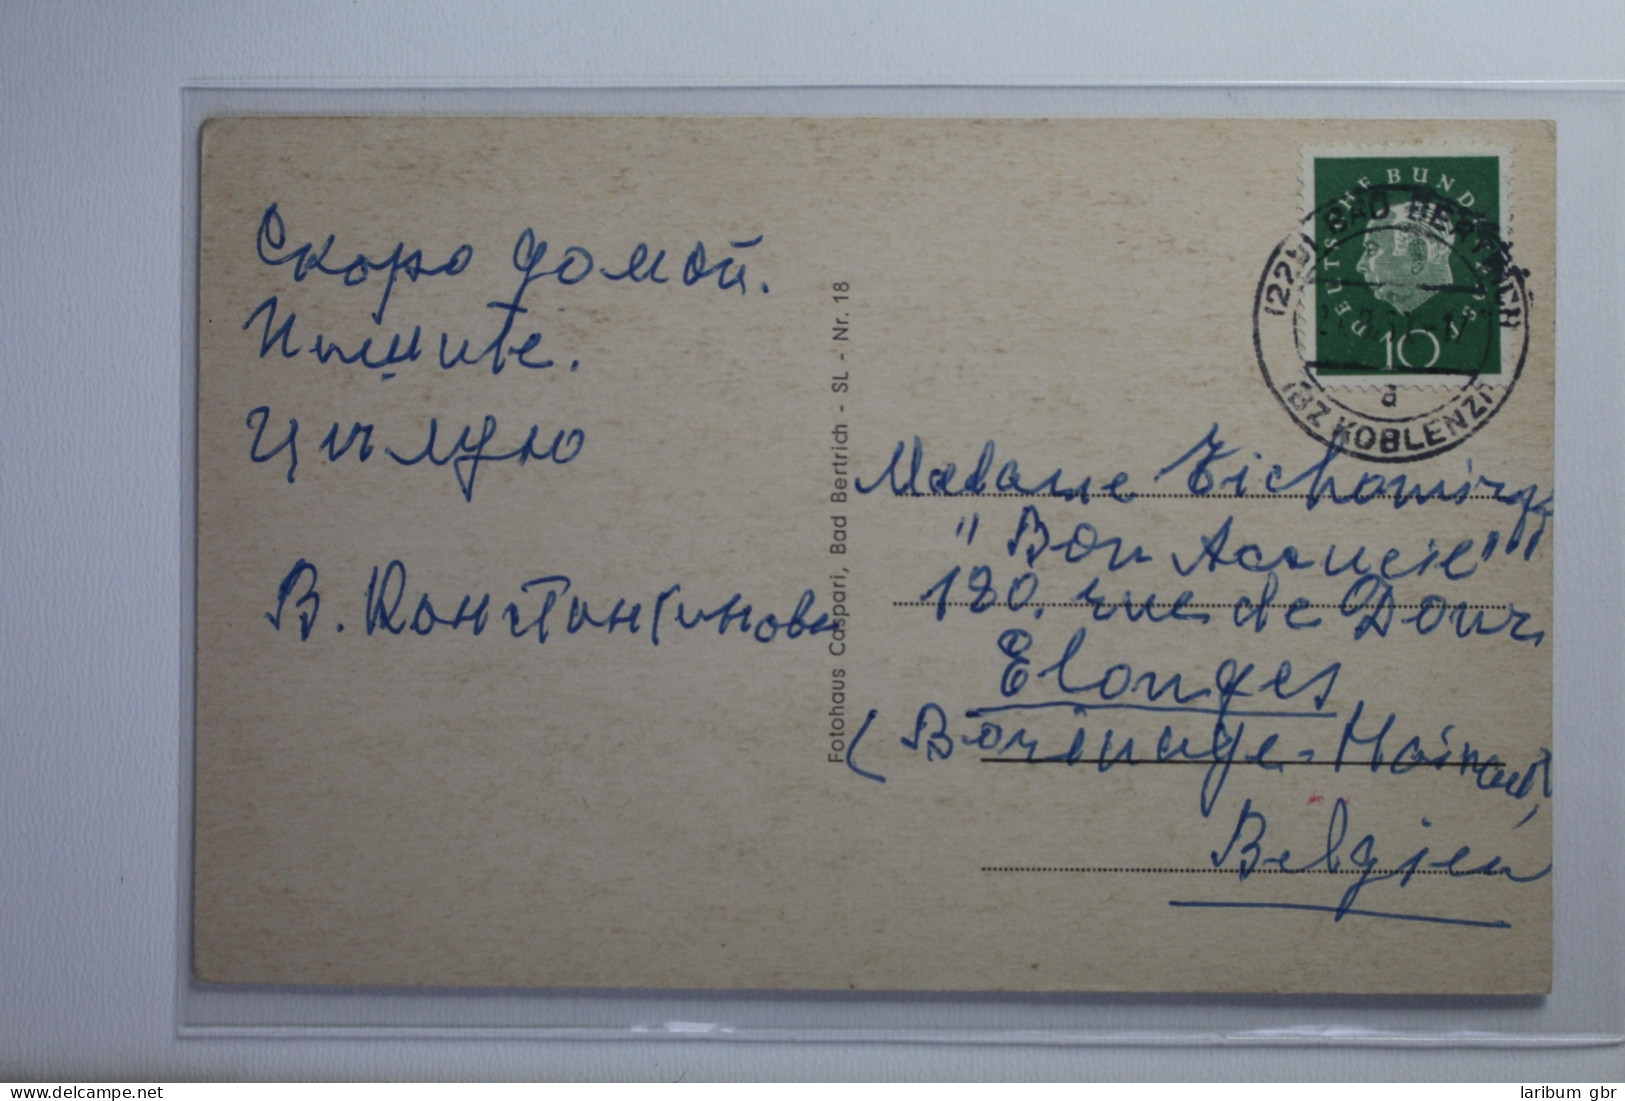 Скоро домой.
Пишите.
Цѣлую
В. Константинова
Fotohaus Caspari, Bad Bertrich - SL - Nr. 18
DEUTSCHE BUNDESPOST
10
(22b) BAD BERTRICH
a
(BZ KOBLENZ)
Madame Tichomiroff
"Bon Accueil"
180. rue de Dour
Elouges
(Borinage-Hainaut)
Belgien
www.delcampe.net
laribum gbr